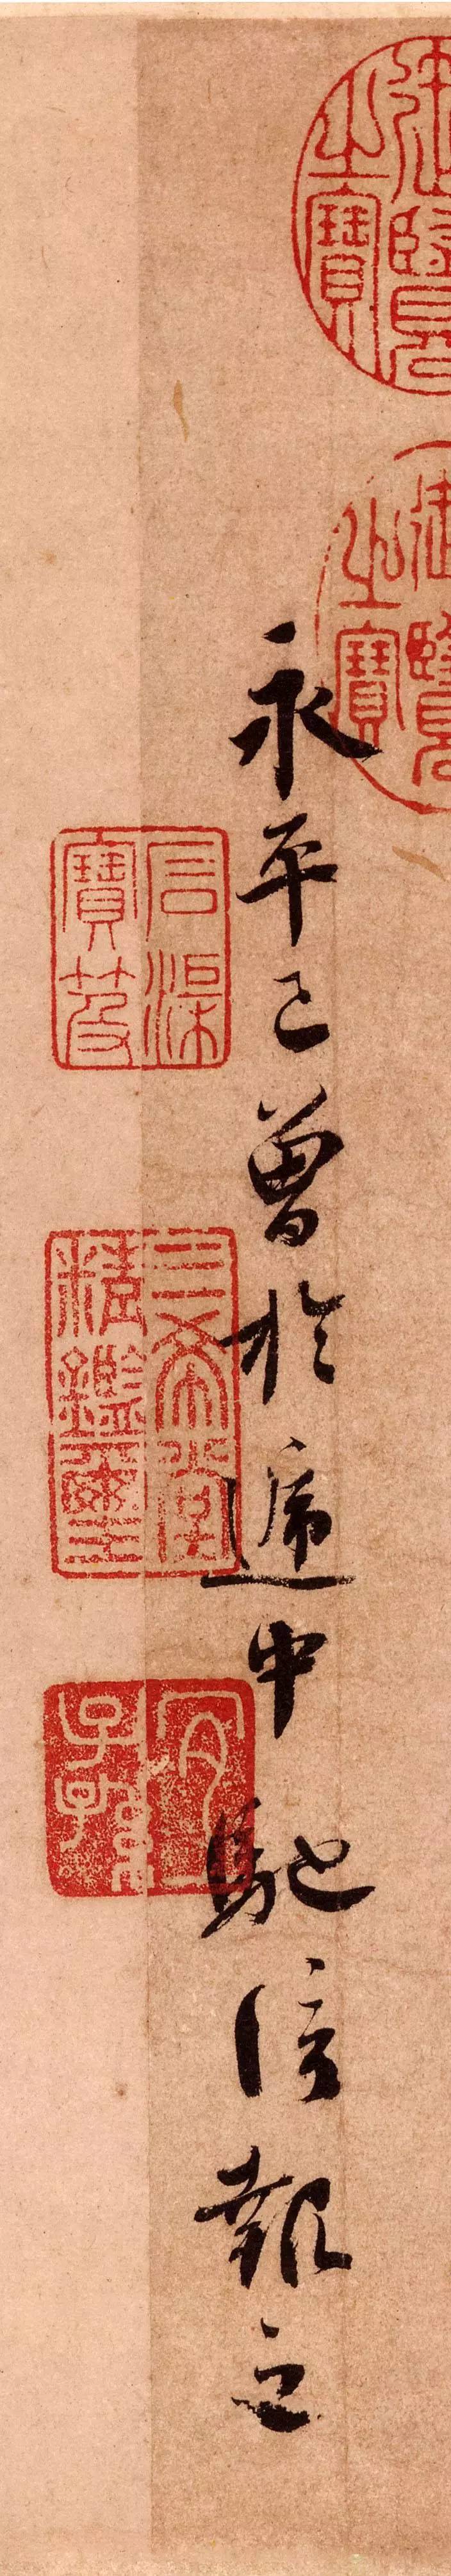 御覽
之寶
御覽
之寶
永平已曾於遞中馳信報之
石渠
寶笈
三希堂
精鑑璽
宜
子孫